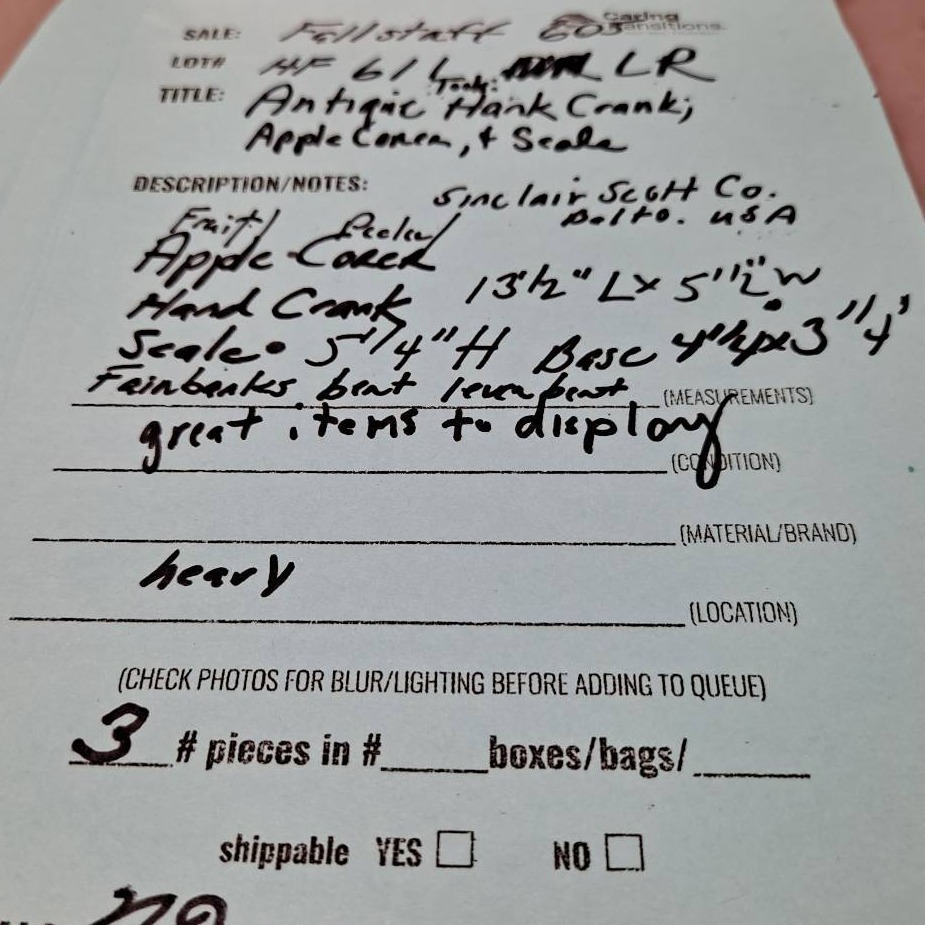 Caring
Transitions.
SALE: Fallstaff 603
LOT# HF 616 LR
TITLE: Antique Tools: Hank Crank;
Apple Corer, + Scale
DESCRIPTION/NOTES: Sinclair Scott Co.
Balto. USA
Fruit/ Peeler/
Apple Corer
Hand Crank 13 1/2" L x 5 1/2" W
Scale 5 1/4" H Base 4 1/4 x 3 1/4"
Fairbanks, bent lever bent (MEASUREMENTS)
great items to display
(CONDITION)
(MATERIAL/BRAND)
heavy
(LOCATION)
(CHECK PHOTOS FOR BLUR/LIGHTING BEFORE ADDING TO QUEUE)
3 # pieces in # boxes/bags/
shippable YES NO